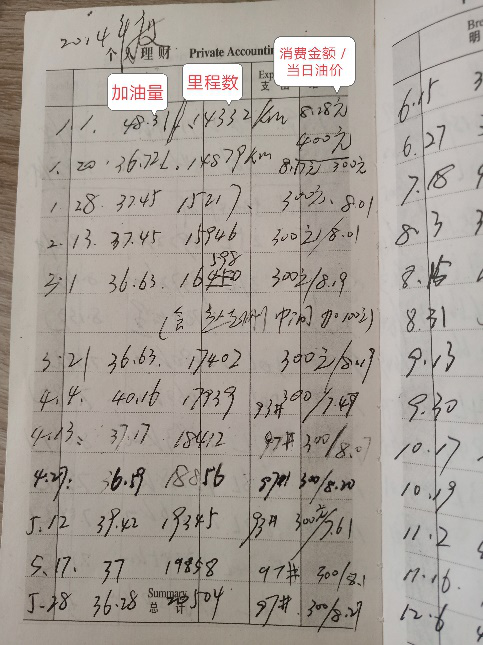 2014年
个人理财 Private Accounting
加油量
里程数
消费金额 /
当日油价
1. 1. 48.31 14332 Km 8.28元
400元
1. 20. 36.72L. 14879Km 8.17元 300元
1. 28. 37.45 15217. 300元. 8.01
2. 13. 37.45 15946 300元/8.01
598
3. 1 36.63. 16 300元/8.19
中间加100元)
3. 21 36.63. 17402 300元/8.19
4. 4. 40.16 17939 93# 300/7.47
4. 13. 37.17 18412 97# 300/8.07
4. 27. 36.59 18856 97# 300/8.20
5. 12 39.42 19345 93# 300元/7.61
5. 17. 37 19858 97# 300/8.1
Summary
总 计
5. 28 36.28 20504 97# 300/8.27
6. 15
6. 27
7. 18
8. 3
8. 15
8. 31
9. 13
9. 30
10. 17
10. 19
11. 2
11. 16.
12. 6